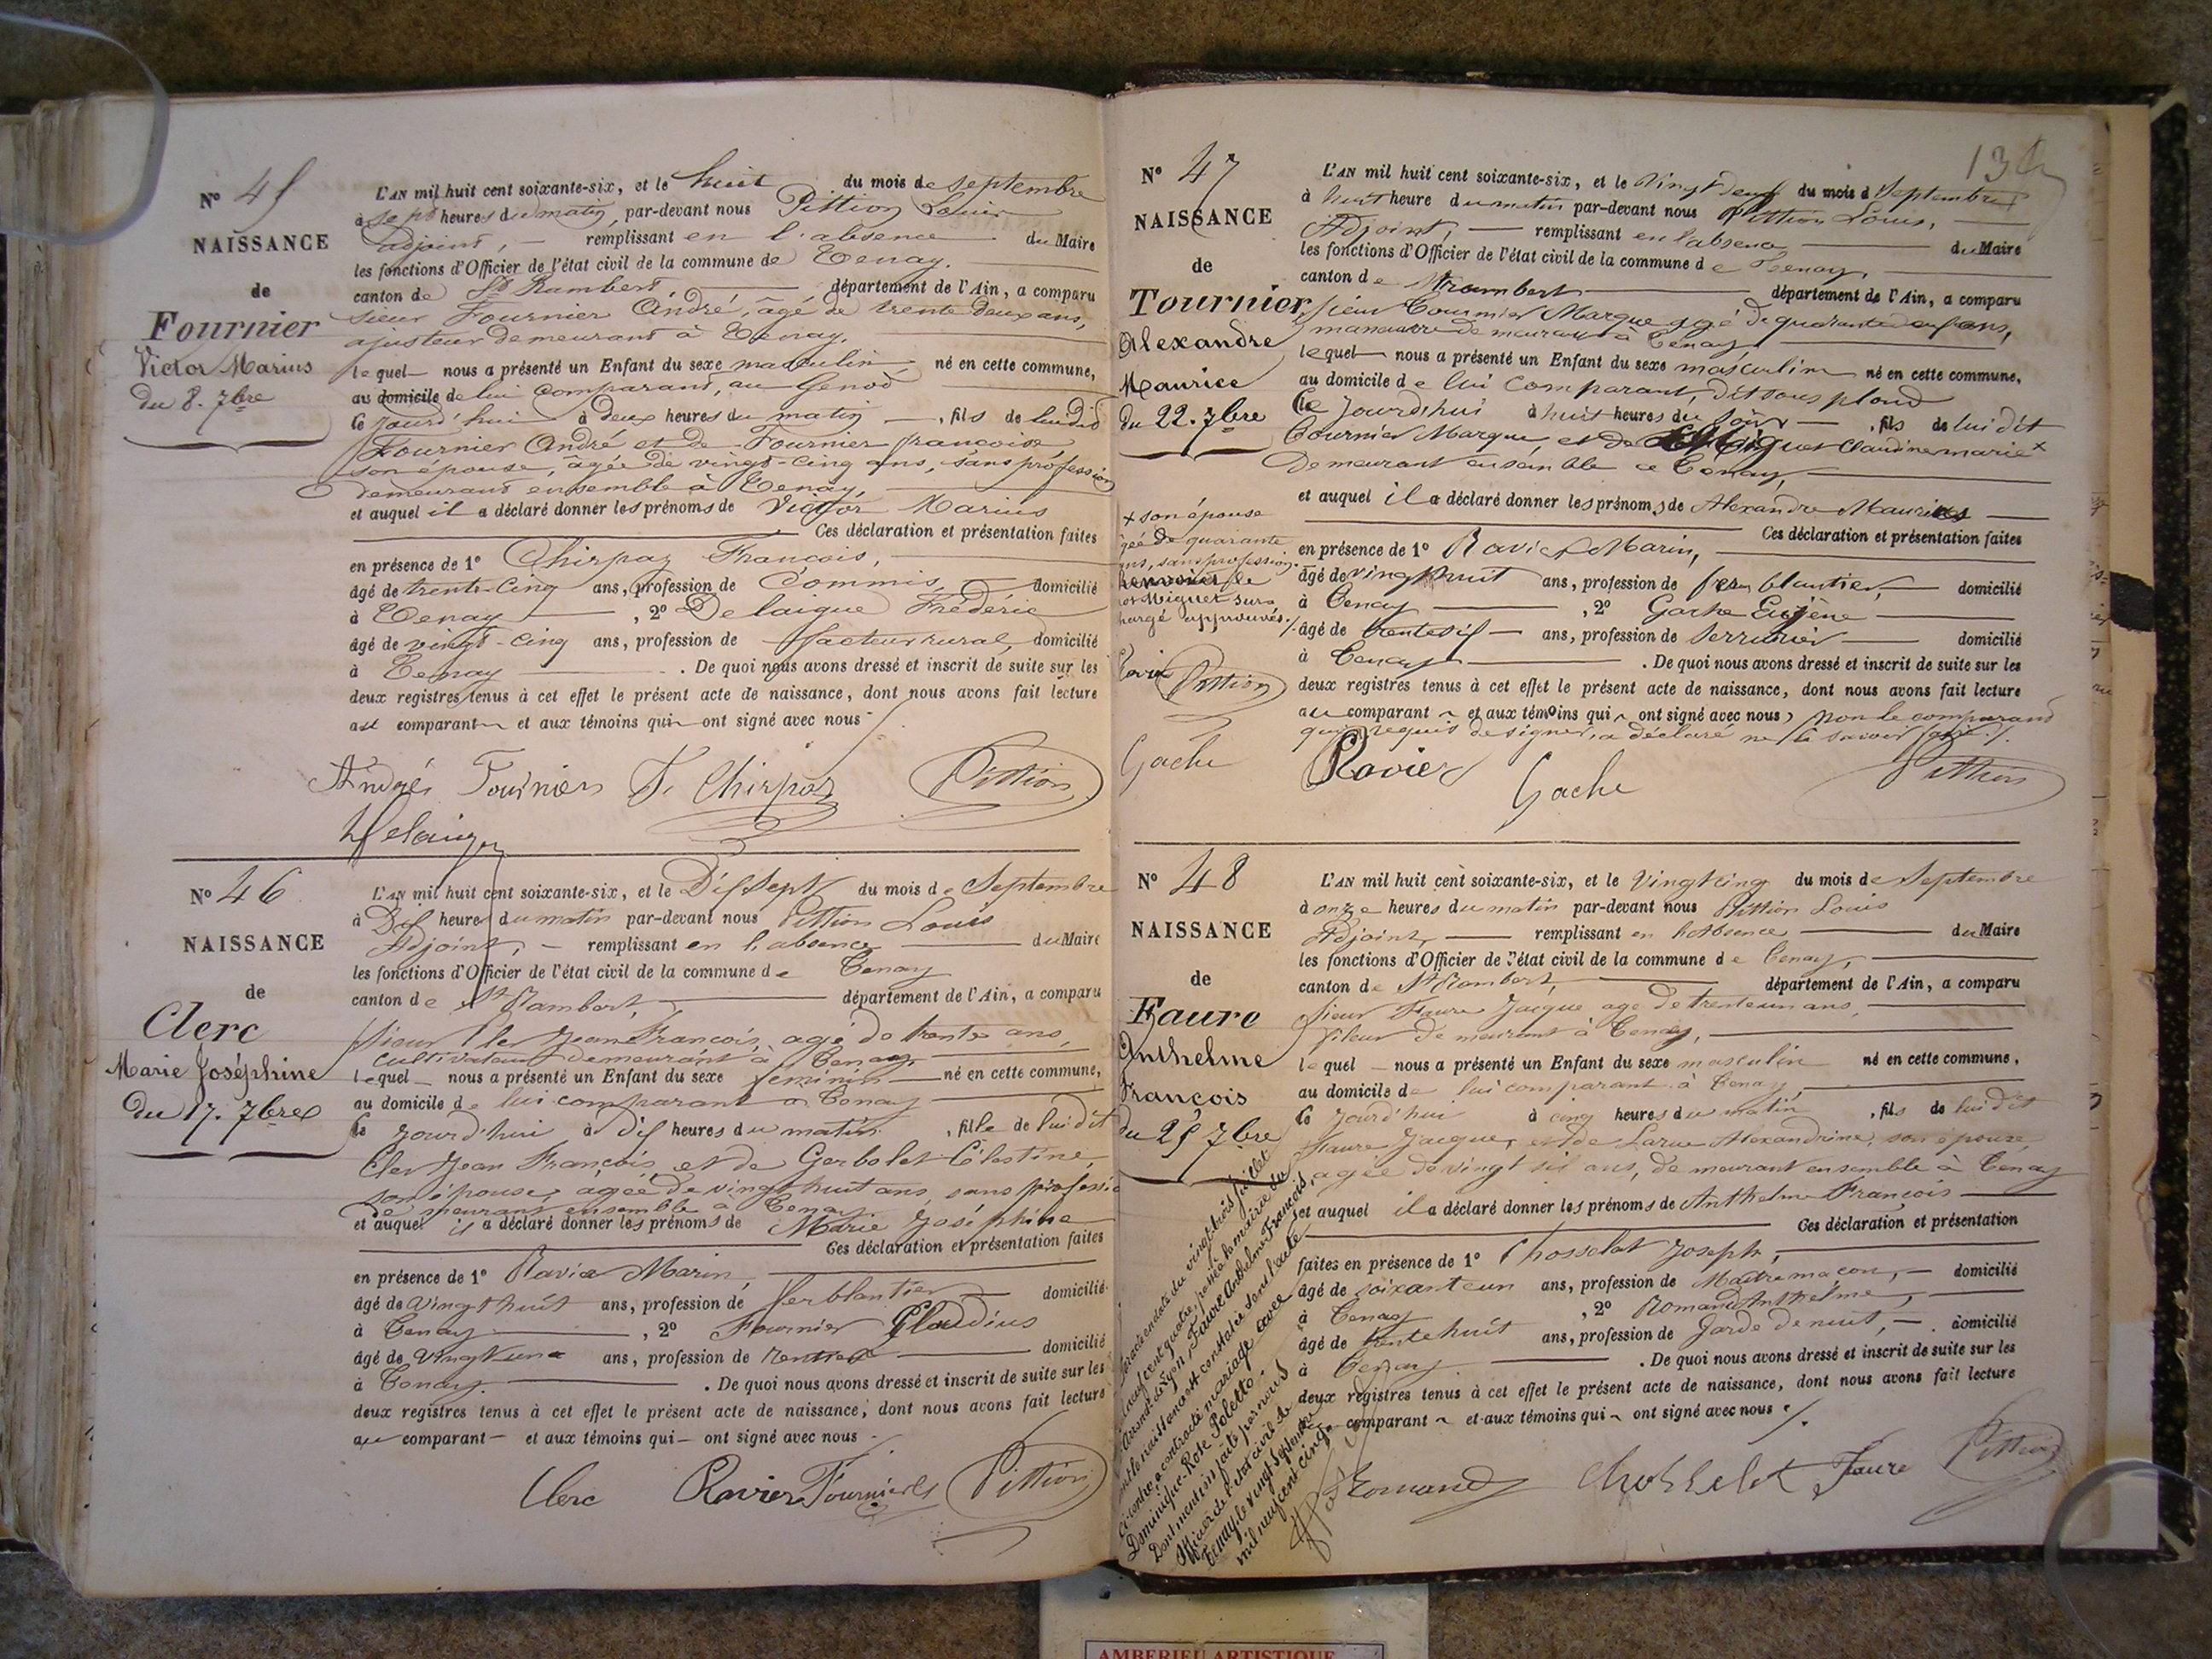 N° 45
NAISSANCE
de
Fournier
Victor Marius
du 8. 7bre
L'AN mil huit cent soixante-six, et le huit du mois de septembre
à sept heures du matin, par-devant nous Pittion Louis
adjoint, remplissant en l'absence du Maire
les fonctions d'Officier de l'état civil de la commune de Tenay.
canton de St Rambert, département de l'Ain, a comparu
sieur Fournier André, âgé de trente deux ans,
ajusteur demeurant à Tenay,
lequel nous a présenté un Enfant du sexe masculin, né en cette commune,
au domicile de lui comparant, au Genod
ce jourd'hui à deux heures du matin, fils de lui dit
Fournier André et de Fournier françoise
son épouse, âgée de vingt-cinq ans, sans profession
demeurant ensemble à Tenay,
et auquel il a déclaré donner les prénoms de Victor Marius
Ces déclaration et présentation faites
en présence de 1° Chirpaz François,
âgé de trente-cinq ans, profession de Commis, domicilié
à Tenay, 2° Delaigue Frédéric
âgé de vingt-cinq ans, profession de facteur rural, domicilié
à Tenay. De quoi nous avons dressé et inscrit de suite sur les
deux registres tenus à cet effet le présent acte de naissance, dont nous avons fait lecture
au comparant et aux témoins qui ont signé avec nous
André Fournier F. Chirpaz Pittion
Delaigue
N° 46
NAISSANCE
de
Clerc
Marie Joséphine
du 17. 7bre
L'AN mil huit cent soixante-six, et le Dix Sept du mois de Septembre
à Dix heures du matin par-devant nous Pittion Louis
Adjoint, remplissant en l'absence du Maire
les fonctions d'Officier de l'état civil de la commune de Tenay
canton de St Rambert, département de l'Ain, a comparu
Sieur Clerc Jean François, agé de trente ans,
cultivateur demeurant à Tenay
lequel nous a présenté un Enfant du sexe féminin né en cette commune,
au domicile de lui comparant a Tenay
ce jourd'hui à dix heures du matin, fille de lui dit
Clerc Jean François, et de Gerbolet Célestine,
son épouse, âgée de vingt huit ans, sans professio
demeurant ensemble à Tenay
et auquel il a déclaré donner les prénoms de Marie Joséphine
Ces déclaration et présentation faites
en présence de 1° Ravier Marin,
âgé de vingt huit ans, profession de ferblantier domicilié
à Tenay, 2° Fournier Claudius
âgé de vingt un ans, profession de rentier domicilié
à Tenay. De quoi nous avons dressé et inscrit de suite sur les
deux registres tenus à cet effet le présent acte de naissance, dont nous avons fait lecture
au comparant et aux témoins qui ont signé avec nous
Clerc Ravier Fournier Pittion
N° 47
NAISSANCE
de
Tournier
Alexandre
Maurice
du 22. 7bre
L'AN mil huit cent soixante-six, et le vingt deux du mois d Septembre
à huit heure du matin par-devant nous Pittion Louis,
Adjoint, remplissant en l'absence du Maire
les fonctions d'Officier de l'état civil de la commune de Tenay,
canton de St rambert département de l'Ain, a comparu
sieur Tournier Marque agé de quarante deux ans,
manœuvre demeurant à Tenay
lequel nous a présenté un Enfant du sexe masculin né en cette commune,
au domicile de lui comparant, dit sous plond
Ce jourdhui à huit heures du soir, fils de lui dit
Tournier Marque et de Miguet Claudine marie +
Demeurant ensemble a Tenay,
et auquel il a déclaré donner les prénoms de Alexandre Maurice
Ces déclaration et présentation faites
en présence de 1° Ravier Marin,
âgé de vingt huit ans, profession de ferblantier, domicilié
à Tenay, 2° Gache Eugène
âgé de trente six ans, profession de serrurier domicilié
à Tenay. De quoi nous avons dressé et inscrit de suite sur les
deux registres tenus à cet effet le présent acte de naissance, dont nous avons fait lecture
au comparant et aux témoins qui ont signé avec nous, non le comparant
qui requis de signer, a déclaré ne le savoir faire./.
+ son épouse
gée de quarante
ans, sans profession.
Renvoi et le
mot Miguet sur
chargé approuvés./.
Ravier Pittion
Gache Ravier Gache Pittion
N° 48
NAISSANCE
de
Faure
Anthelme
François
du 25 7bre
L'AN mil huit cent soixante-six, et le vingt cinq du mois de Septembre
à onze heures du matin par-devant nous Pittion Louis
Adjoint, remplissant en l'absence du Maire
les fonctions d'Officier de l'état civil de la commune de Tenay,
canton de St Rambert, département de l'Ain, a comparu
sieur Faure Jacque agé de trente un ans,
fileur demeurant à Tenay,
lequel nous a présenté un Enfant du sexe masculin né en cette commune,
au domicile de lui comparant à Tenay
Ce jourd'hui à cinq heures du matin, fils de lui dit
Faure Jacque, et de Larue Alexandrine, son épouse
agée de vingt six ans, demeurant ensemble à Tenay
et auquel il a déclaré donner les prénoms de Anthelme François
Ces déclaration et présentation
faites en présence de 1° Chosselat Joseph,
âgé de soixante un ans, profession de Maître maçon, domicilié
à Tenay, 2° Romand Anthelme,
âgé de trente huit ans, profession de garde de nuit, domicilié
à Tenay. De quoi nous avons dressé et inscrit de suite sur les
deux registres tenus à cet effet le présent acte de naissance, dont nous avons fait lecture
au comparant et aux témoins qui ont signé avec nous./.
Romand Chosselat Faure Pittion
acte en date du vingt trois juillet
neuf cent quatre, passé à la mairie du
Lyon, Faure Anthelme François,
dont la naissance est constatée dans l'acte
ci-contre, a contracté mariage avec
Dominique-Rose Poletto.
Dont mention faite par nous
Officier de l'état civil de
Tenay, le vingt septembre
mil neuf cent cinq.
AMBERIEU ARTISTIQUE